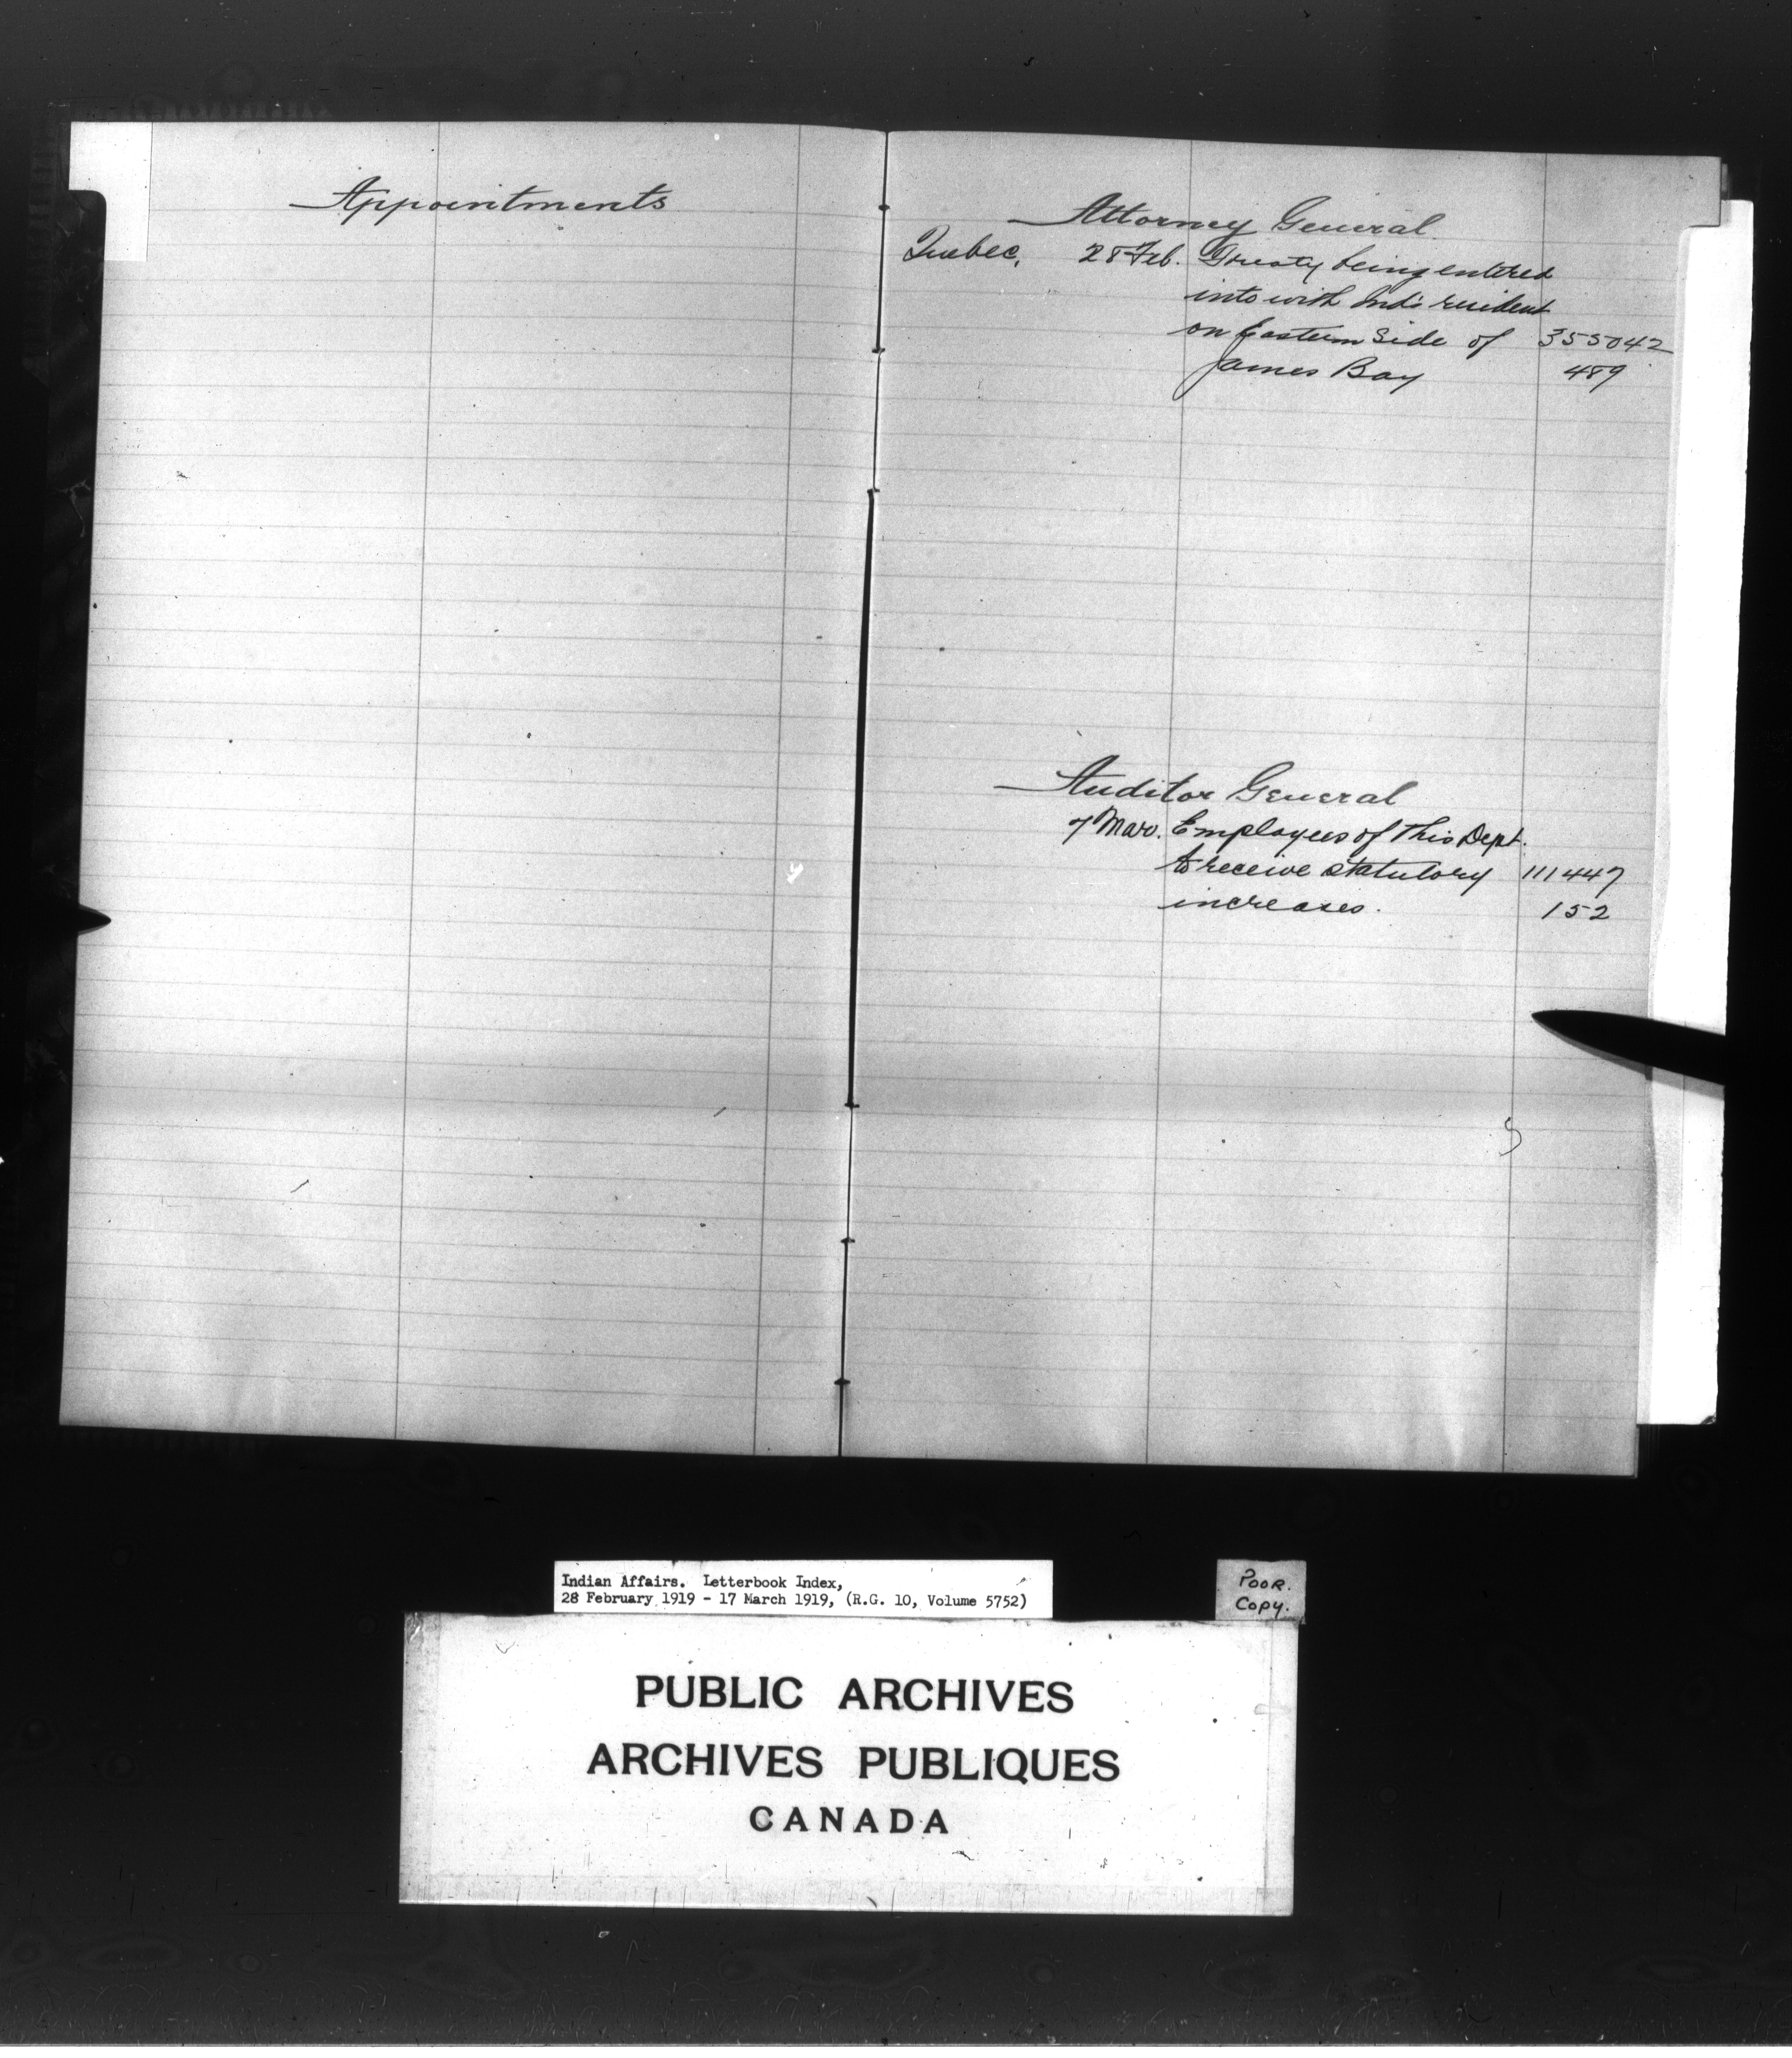 Appointments
Attorney General
Quebec, 28 Feb. Treaty being entered
into with Inds resident
on Eastern Side of 355042
James Bay 489
Auditor General
7 Mar. Employees of this Dept.
to receive statutory 111447
increases. 152
Indian Affairs. Letterbook Index,
28 February 1919 - 17 March 1919, (R.G. 10, Volume 5752)
POOR.
COPY.
PUBLIC ARCHIVES
ARCHIVES PUBLIQUES
CANADA